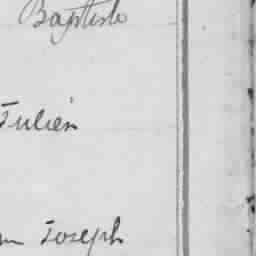 Baptiste
Julien
Joseph